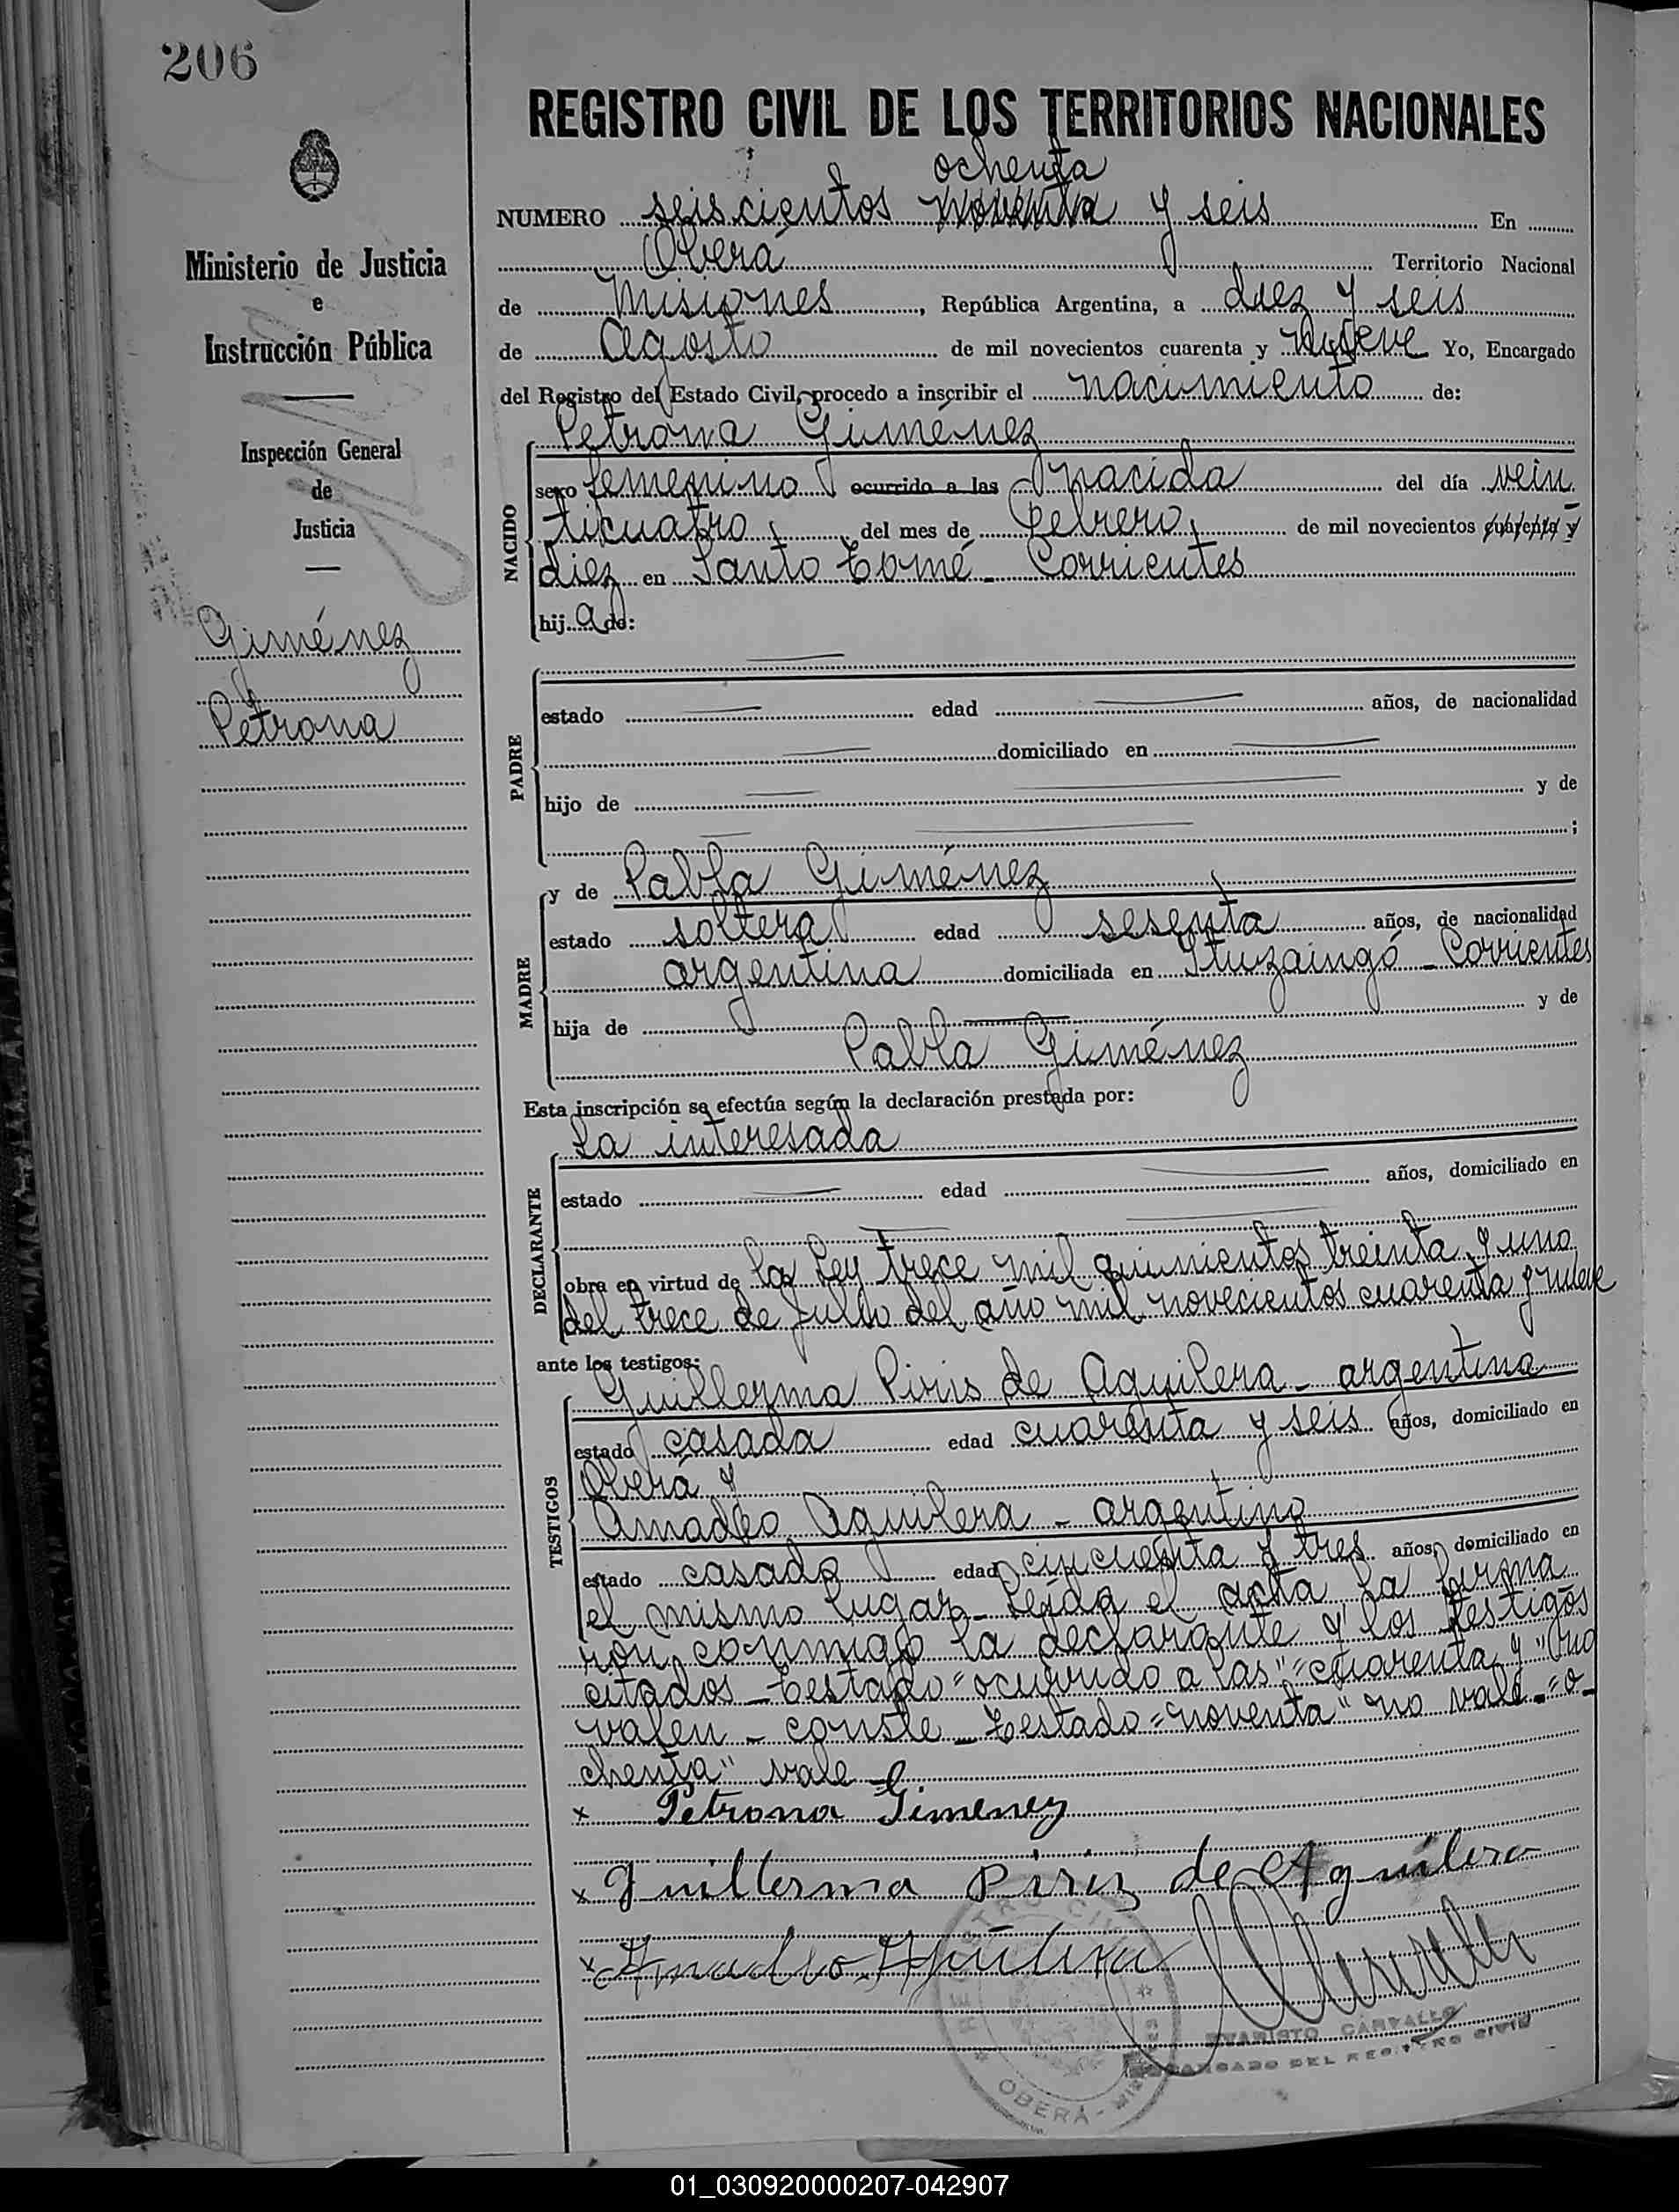 206
REGISTRO CIVIL DE LOS TERRITORIOS NACIONALES
ochenta
NUMERO seiscientos noventa y seis En
Oberá Territorio Nacional
de Misiones, República Argentina, a diez y seis
de Agosto de mil novecientos cuarenta y nueve Yo, Encargado
del Registro del Estado Civil, procedo a inscribir el nacimiento de:
Ministerio de Justicia
e
Instrucción Pública
Inspección General
de
Justicia
Giménez
Petrona
NACIDO
Petrona Giménez
sexo femenino ocurrido a las nacida del día vein
ticuatro del mes de Febrero, de mil novecientos cuarenta y
diez en Santo Tomé - Corrientes
hij a de:
PADRE
estado edad años, de nacionalidad
domiciliado en
hijo de y de
;
MADRE
y de Pabla Giménez
estado soltera edad sesenta años, de nacionalidad
argentina domiciliada en Ituzaingó - Corrientes
hija de y de
Pabla Giménez
Esta inscripción se efectúa según la declaración prestada por:
DECLARANTE
La interesada
estado edad años, domiciliado en
obra en virtud de la Ley trece mil quinientos treinta y uno
del trece de Julio del año mil novecientos cuarenta y nueve
ante los testigos:
TESTIGOS
Guillerma Piris de Aguilera - argentina
estado casada edad cuarenta y seis años, domiciliado en
Oberá y
Amadeo Aguilera - argentino
estado casado edad cincuenta y tres años, domiciliado en
el mismo lugar - Leída el acta la firma
ron conmigo la declarante y los testigos
citados - Testado "ocurrido a las" "cuarenta y" no
valen - conste - Testado "noventa" no vale - "o-
chenta" vale -
x Petrona Gimenez
x Guillerma Piriz de Aguilera
x Amadeo Aguilera
REGISTRO CIVIL
OBERÁ - MISIONES
EVARISTO CARVALLO
ENCARGADO DEL REGISTRO CIVIL
01_030920000207-042907